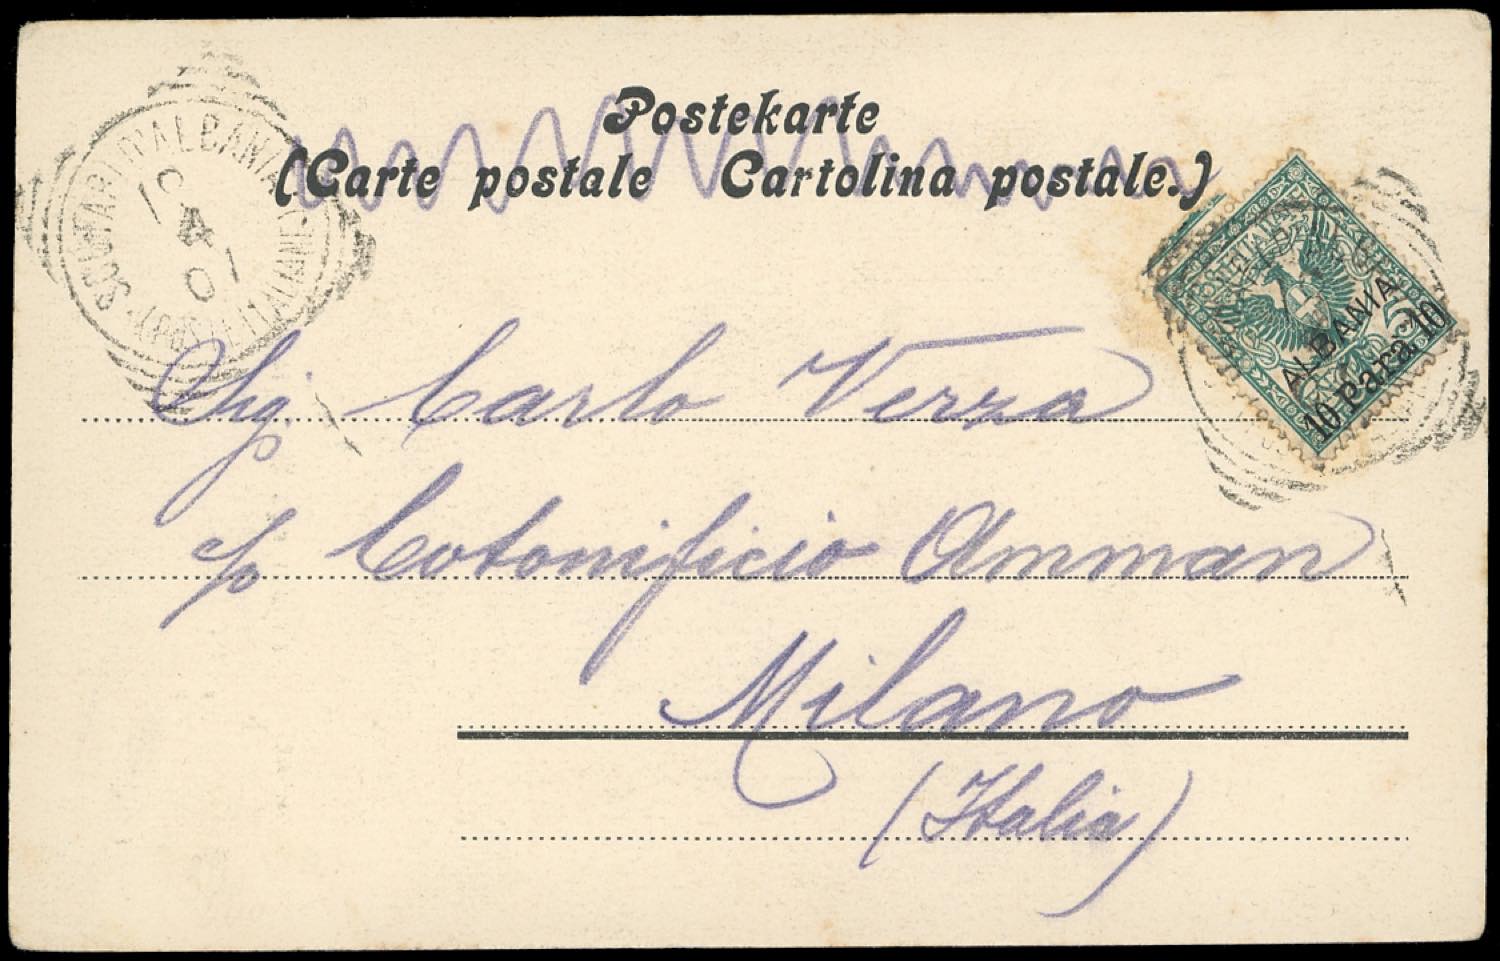 Postekarte
(Carte postale Cartolina postale.)
SCUTARI D'ALBANIA
(POSTE ITALIANE)
10
4
01
POSTE ITALIANE
5
ALBANIA
10 Para 10
Sig. Carlo Verza
c/o Cotonificio Amman
Milano
(Italia)